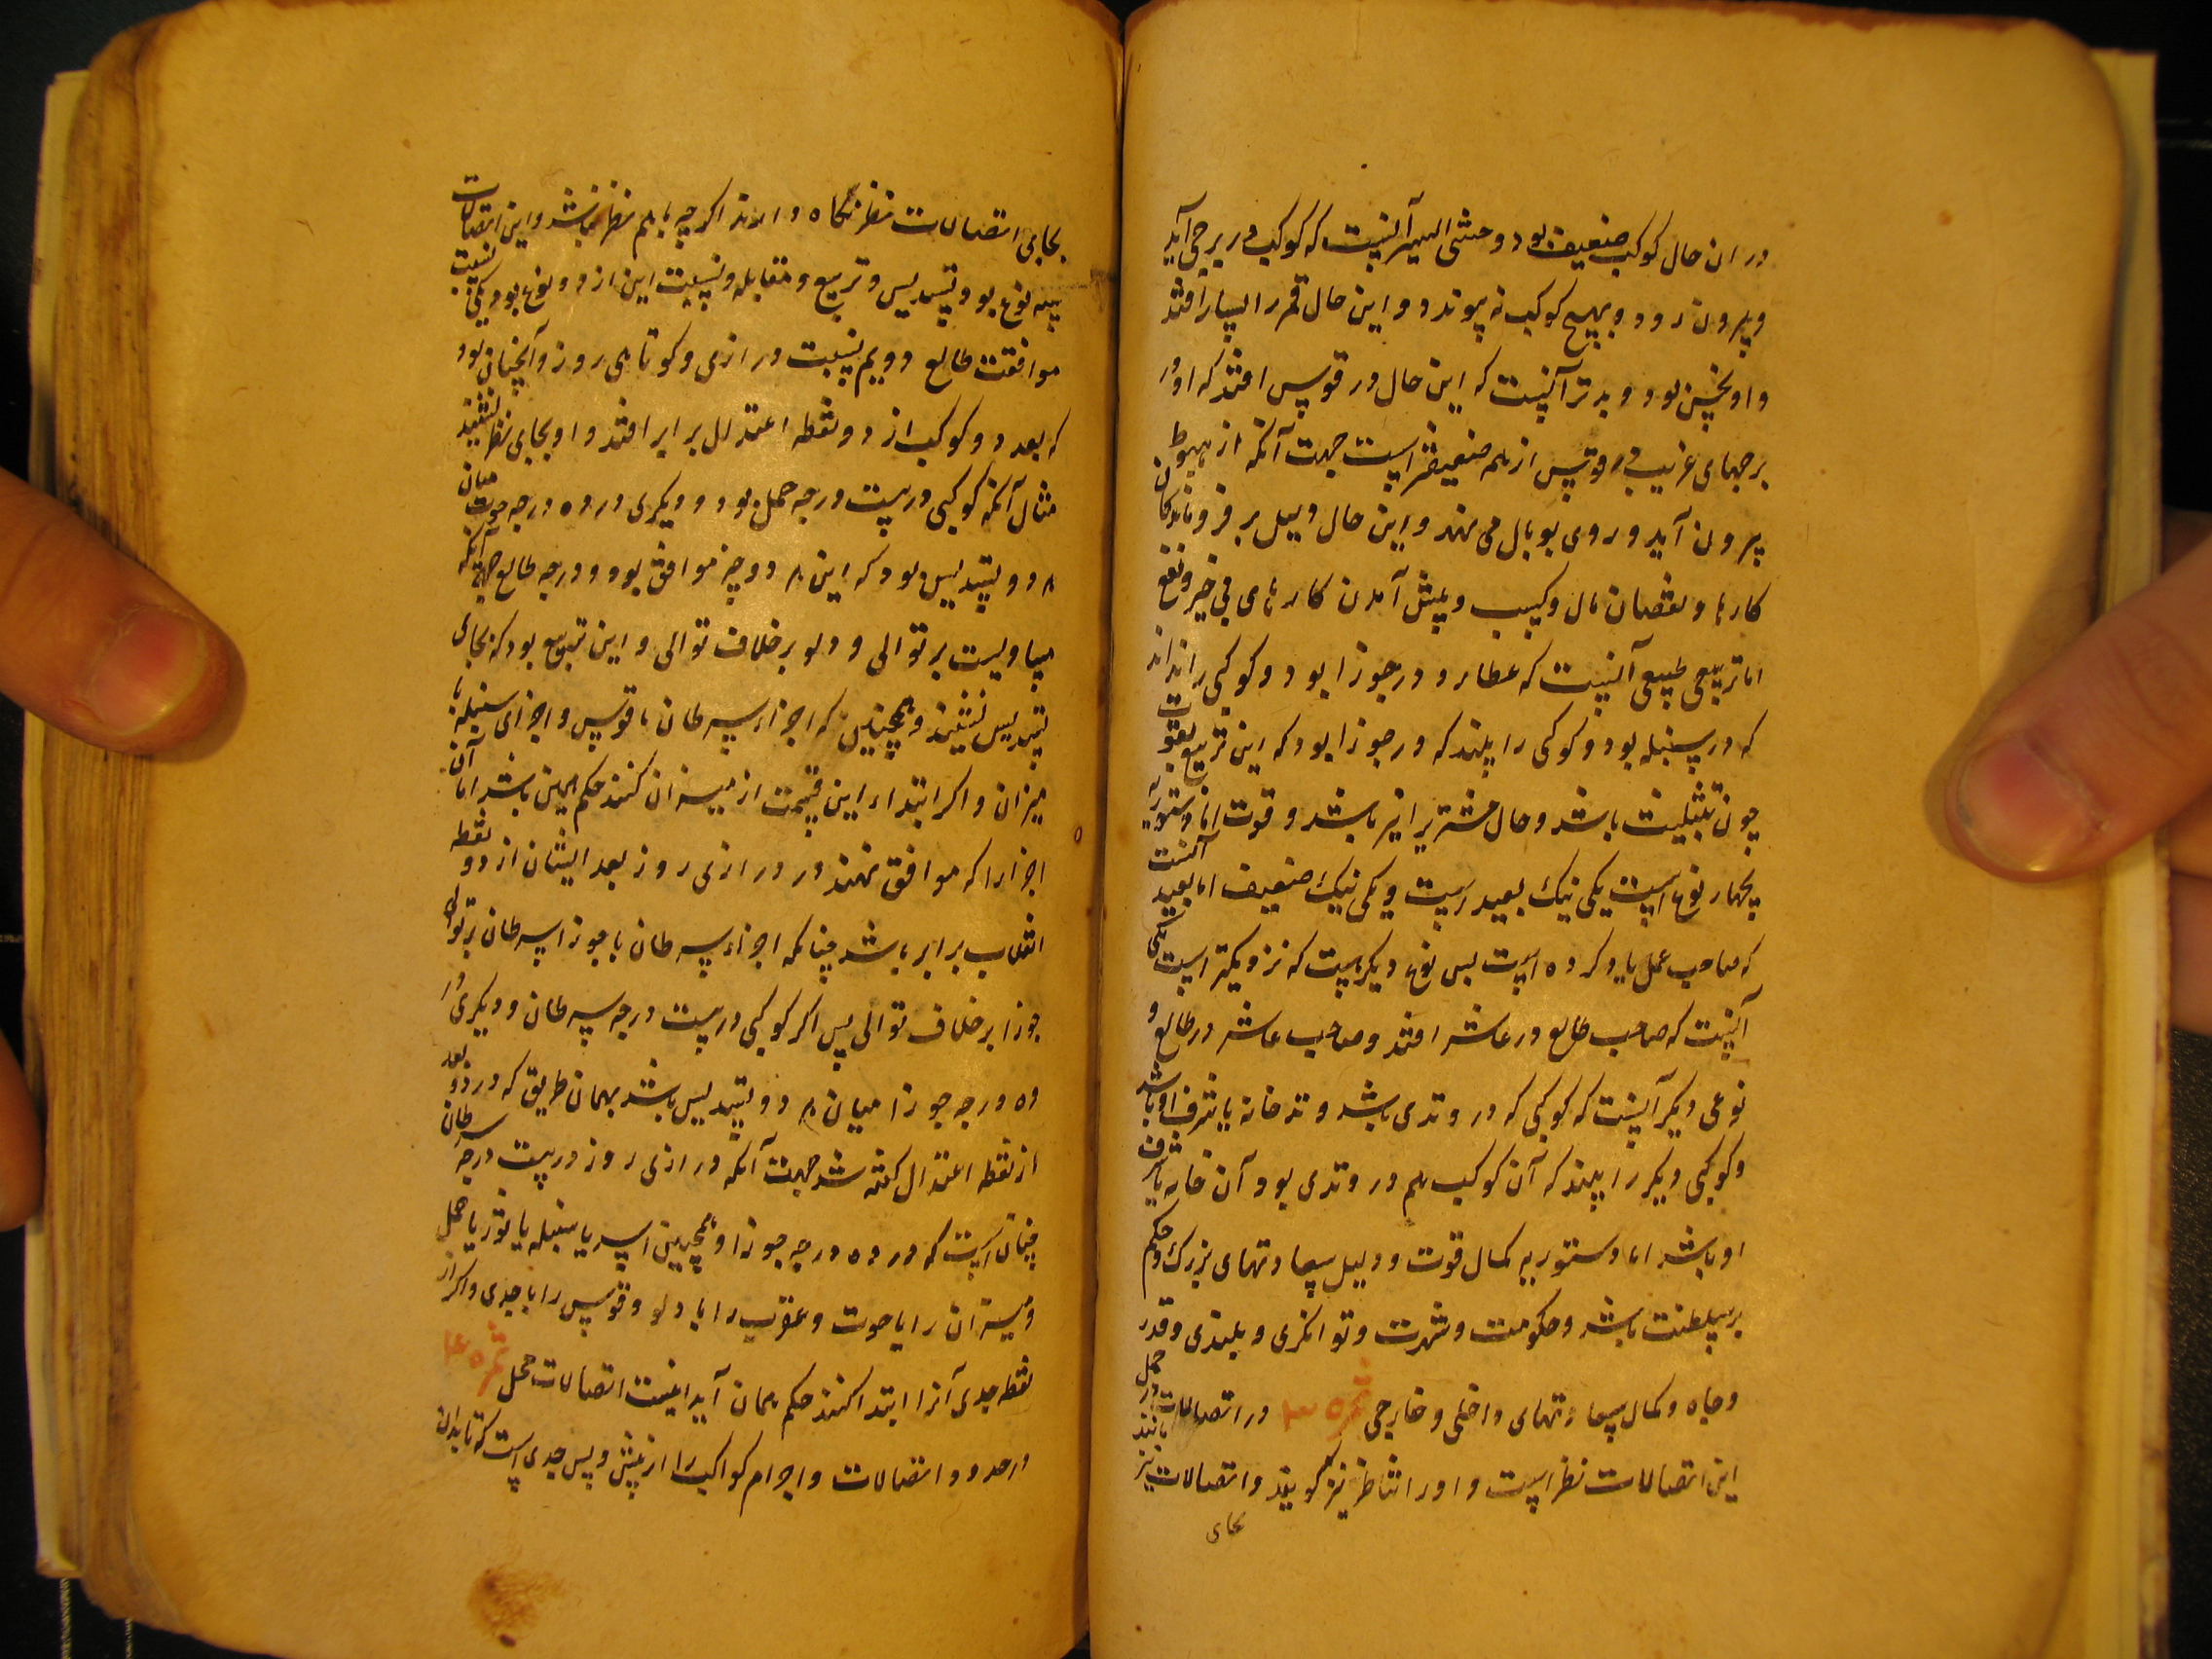 در ان حال کوکب ضعیف بود و حشی السیر آنست که کوکب در برجی آید
و بیرون رود و بهیچ کوکب نه پیوندد و این حال قمر را بسیار افتد
و او نحس بود و بدتر آنست که این حال در قوس افتد که او در
برجهای غریب و در قوس از همه ضعیفتر است جهت آنکه از هبوط
بیرون آید و روی بوبال می نهد و این حال دلیل بر فروماندکان
کارها و نقصان مال و کسب و پیش آمدن کارهای بی خیر و نفع
اما تربیع طبیعی آنست که عطارد در جوزا بود و کوکبی را
که در سنبله بود و کوکبی را بیند که در جوزا بود که این تربیع بقوت
چون تثلیث باشد و حال مشتریرا نیز باشد و قوت اما دستوریه
بچهار نوع است یکی نیک بعید است و یکی نیک ضعیف اما بعید آنست
که صاحب عمل یاد کرده است پس نوع دیکر است که نزدیکتر است یکی
آنست که صاحب طالع در عاشر افتد و صاحب عاشر در طالع و
نوعی دیکر آنست که کوکبی که در وتدی باشد و تد خانه یا شرف او باشد
و کوکبی دیکر را بیند که آن کوکب هم در وتدی بود آن خانه یا شرف
او باشد اما دستوریه کمال قوت و دلیل سعادتهای بزرک و حکم
بر سلطنت باشد و حکومت و شهرت و توانکری و بلندی و قدر
و جاه و کمال سعادتهای داخلی و خارجی ثمره در اتصالات
این اتصالات نظر است و او را تناظر نیز کویند و اتصالات نیز
بجای
بجای اتصالات نظر نکاه دارند اکرچه باهم نظر نباشد و این اتصالات
بسه نوع بود تسدیس و تربیع و مقابله و نسبت این از دو نوع بود یکی نسبت
موافقت طالع دویم نسبت درازی و کوتاهی روز و آنچنان بود
که بعد دو کوکب از دو نقطه اعتدال برابر افتد و او بجای نظر نشیند
مثال آنکه کوکبی در بیست درجه حمل بود و دیکری در ده درجه حوت میان
هر دو تسدیس بود که این هر دو چیز موافق بود و درجه طالع جهة آنکه
مساویست بر توالی و دلو بر خلاف توالی و این تربیع بود که بجای
تسدیس نشیند و همچنین که اجزاء سرطان با قوس و اجزای سنبله با
میزان و اکر ابتداء این قسمت از میزان کنند حکم همین باشد اما آن
اجزا را که موافق نهند در درازی روز بعد ایشان از دو نقطه
انقلاب برابر باشد چنانکه اجزاء سرطان با جوزا سرطان بر توالی
جوزا بر خلاف توالی پس اکر کوکبی در بیست درجه سرطان و دیکری در
ده درجه جوزا میان هر دو تسدیس باشد بهمان طریق که در دو بعد
از نقطه اعتدال کفته شد جهت آنکه درازی روز در بیست درجه سرطان
چنان است که در ده درجه جوزا و همچنین اسد یا سنبله یا ثور یا حمل
و میزان را با حوت و عقرب را با دلو و قوس را با جدی و اکر از
نقطه جدی آنرا ابتدا کنند حکم همان آید اینست اتصالات محل ثمره
در حدود اتصالات و اجرام کواکب را از پیش و پس حدی است که تا بدان